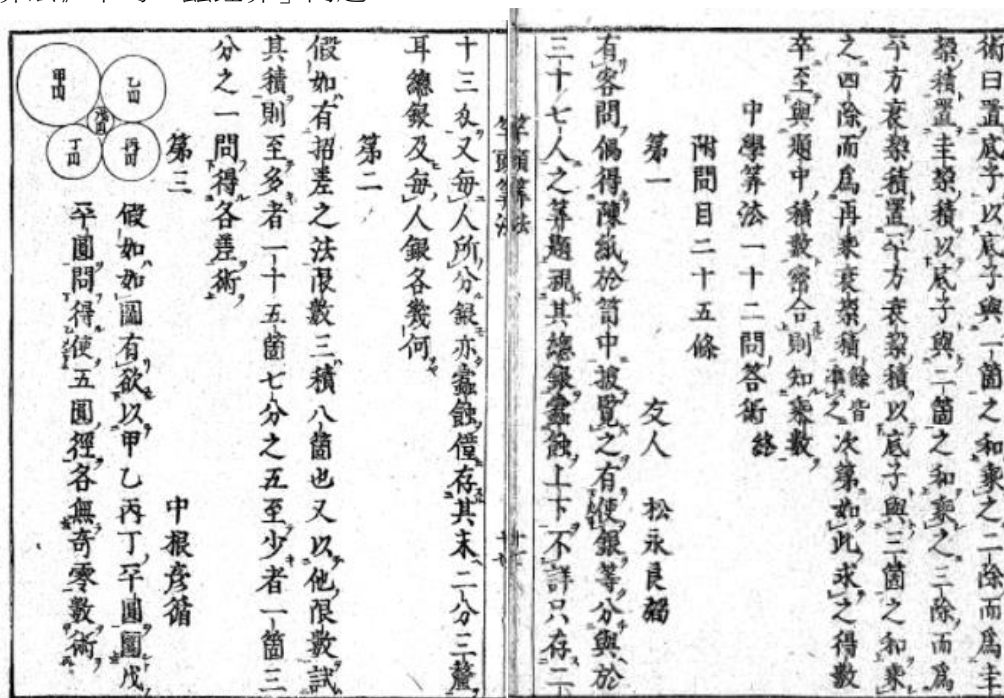 術曰置底子以底子與一箇之和乗之二除而爲圭
梊積置圭梊積以底子與二箇之和乗之三除而爲
平方衰梊積置平方衰梊積以底子與三箇之和乗
之四除而爲再乗衰梊積餘皆準之次第如此求之得數
卒至與題中積數密合則知乗數
中學筭法一十二問答術終
附問目二十五條
第一 友人 松永良弼
有客問偶得陳紙於笥中披覧之有使銀等分與於
三十七人之筭題視其總銀蠧蝕上下不詳只存二
竿頭筭法
十三匁又毎人所分銀亦蠧蝕僅存其末二分三釐
耳總銀及毎人銀各幾何
第二
假如有招差之法限數三積八箇也又以他限數試
其積則至多者一十五箇七分之五至少者一箇三
分之一問得各差術
第三 中根彦循
假如如圖有欲以甲乙丙丁平圓圍戊
平圓問得使五圓徑各無奇零數術
甲円
乙円
戊円
丁円
丙円